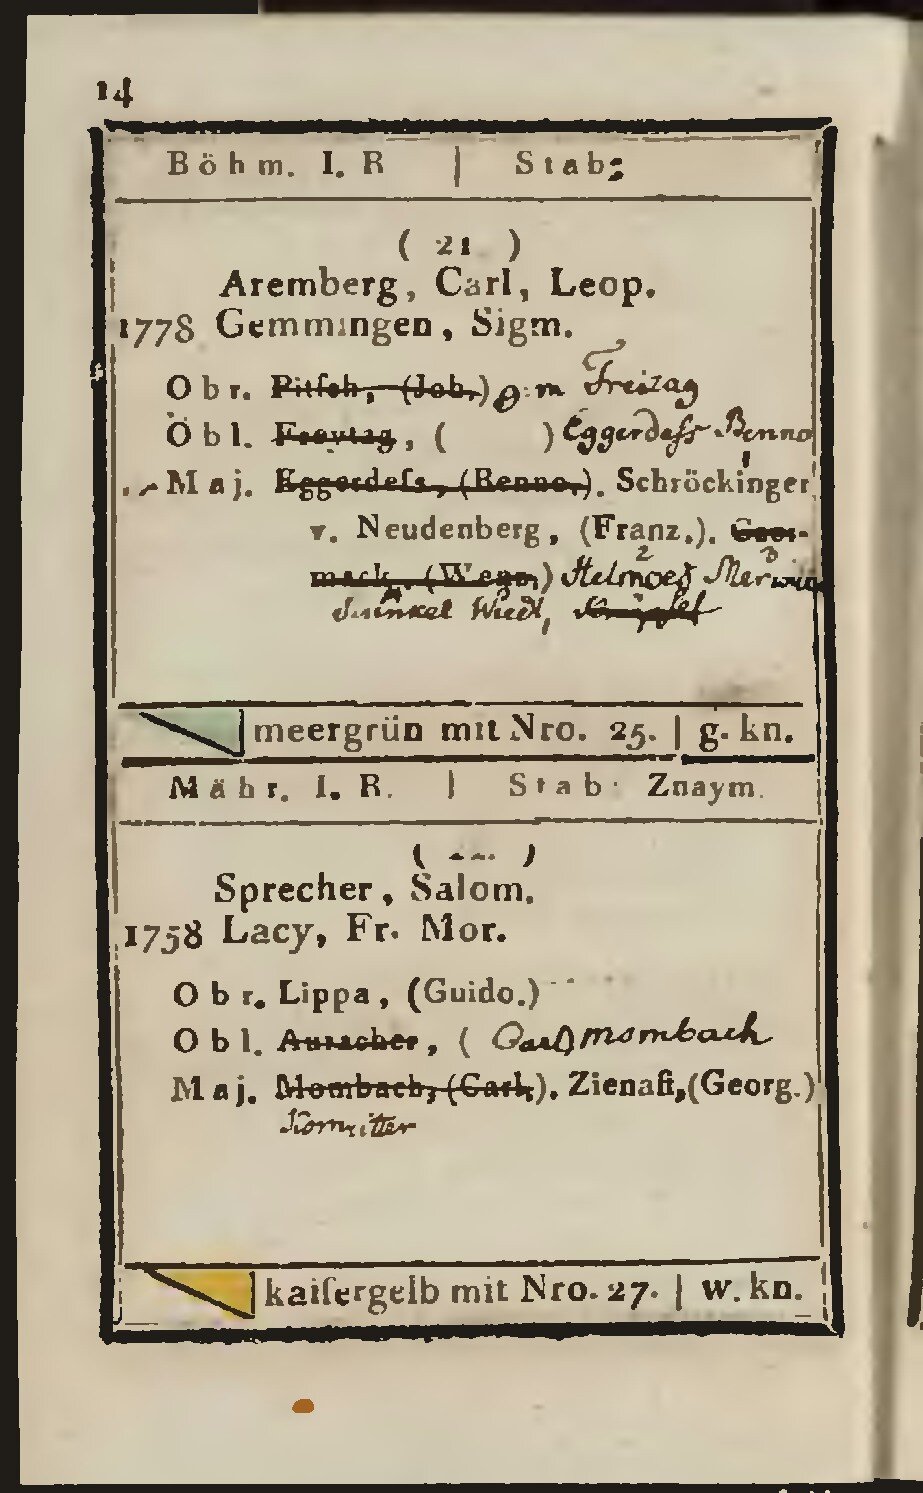 14
Böhm. I. R | Stab:
( 21 )
Aremberg, Carl, Leop.
1778 Gemmingen, Sigm.
Obr. Pitſch, (Joh.) Freizag
Öbl. Freytag, ( ) Eggerdeſs Benno
Maj. Eggerdeſs, (Benno.). Schröckinger
v. Neudenberg, (Franz.).
mack, (Wenz.) Helmoes 2 3
Wiedl,
meergrün mit Nro. 25. | g. kn.
Mähr. I. R. | Stab: Znaym.
( )
Sprecher, Salom.
1758 Lacy, Fr. Mor.
Obr. Lippa, (Guido.)
Obl. Auracher, ( Carl) Mombach
Maj. Mombach, (Carl.). Zienaſi, (Georg.)
kaiſergelb mit Nro. 27. | w. kn.